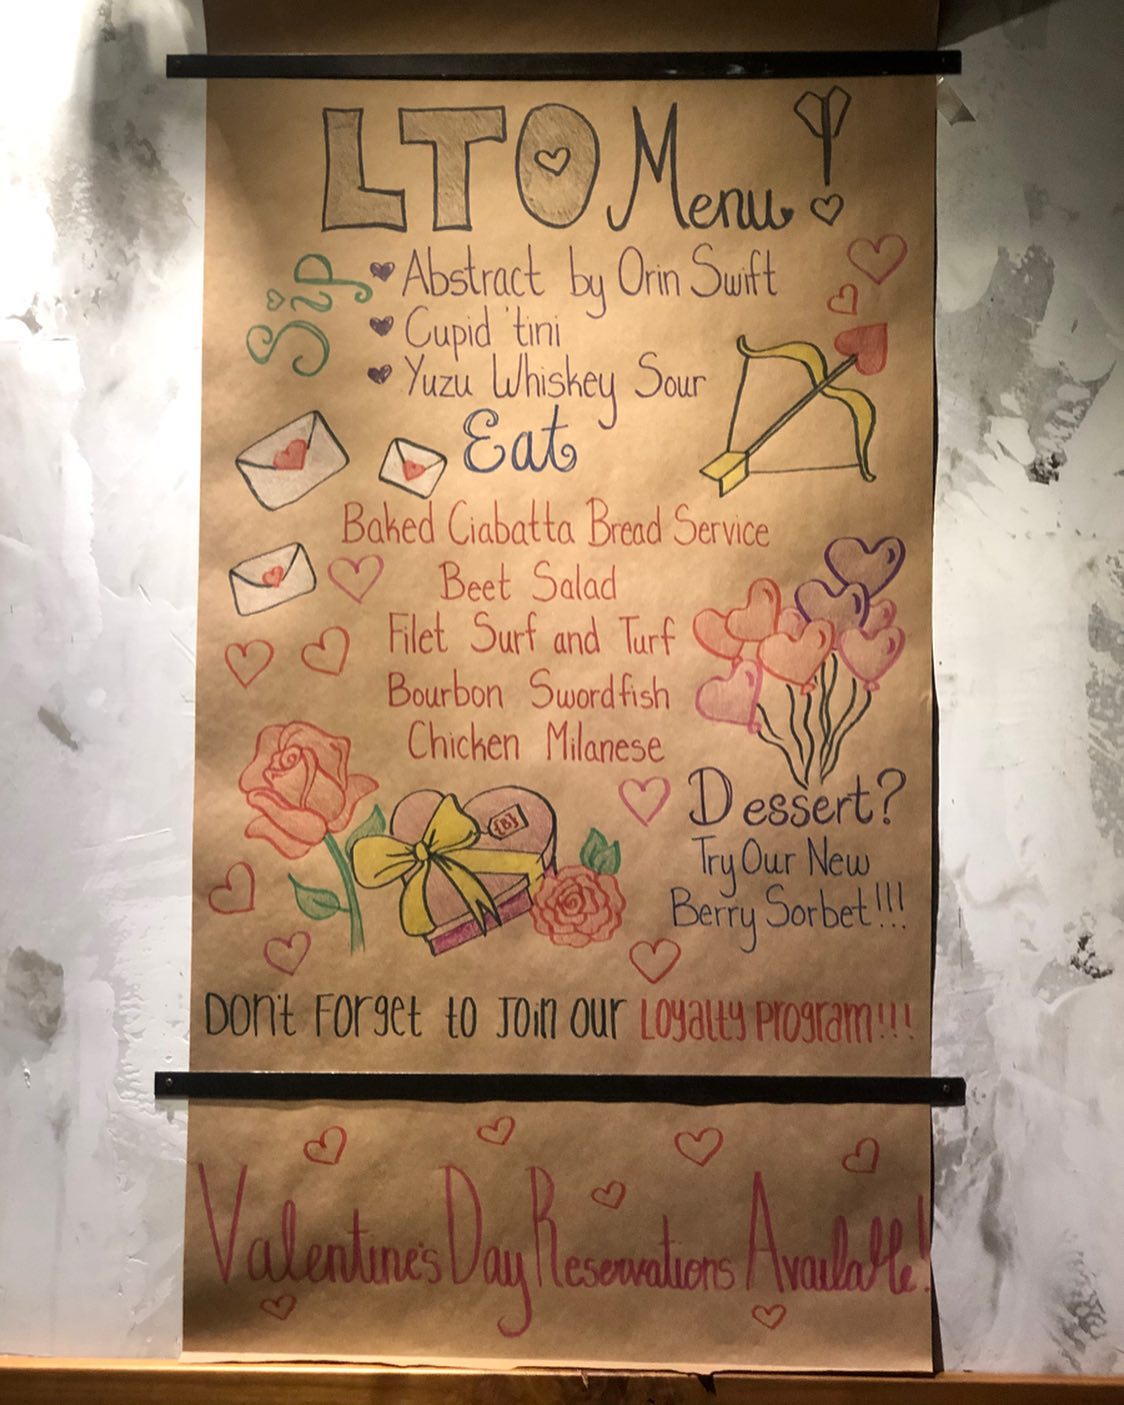 LTO Menu!
Sip
Abstract by Orin Swift
Cupid 'tini
Yuzu Whiskey Sour
Eat
Baked Ciabatta Bread Service
Beet Salad
Filet Surf and Turf
Bourbon Swordfish
Chicken Milanese
{B}
Dessert?
Try Our New
Berry Sorbet!!!
Don't Forget to Join our Loyalty Program!!!
Valentine's Day Reservations Available!